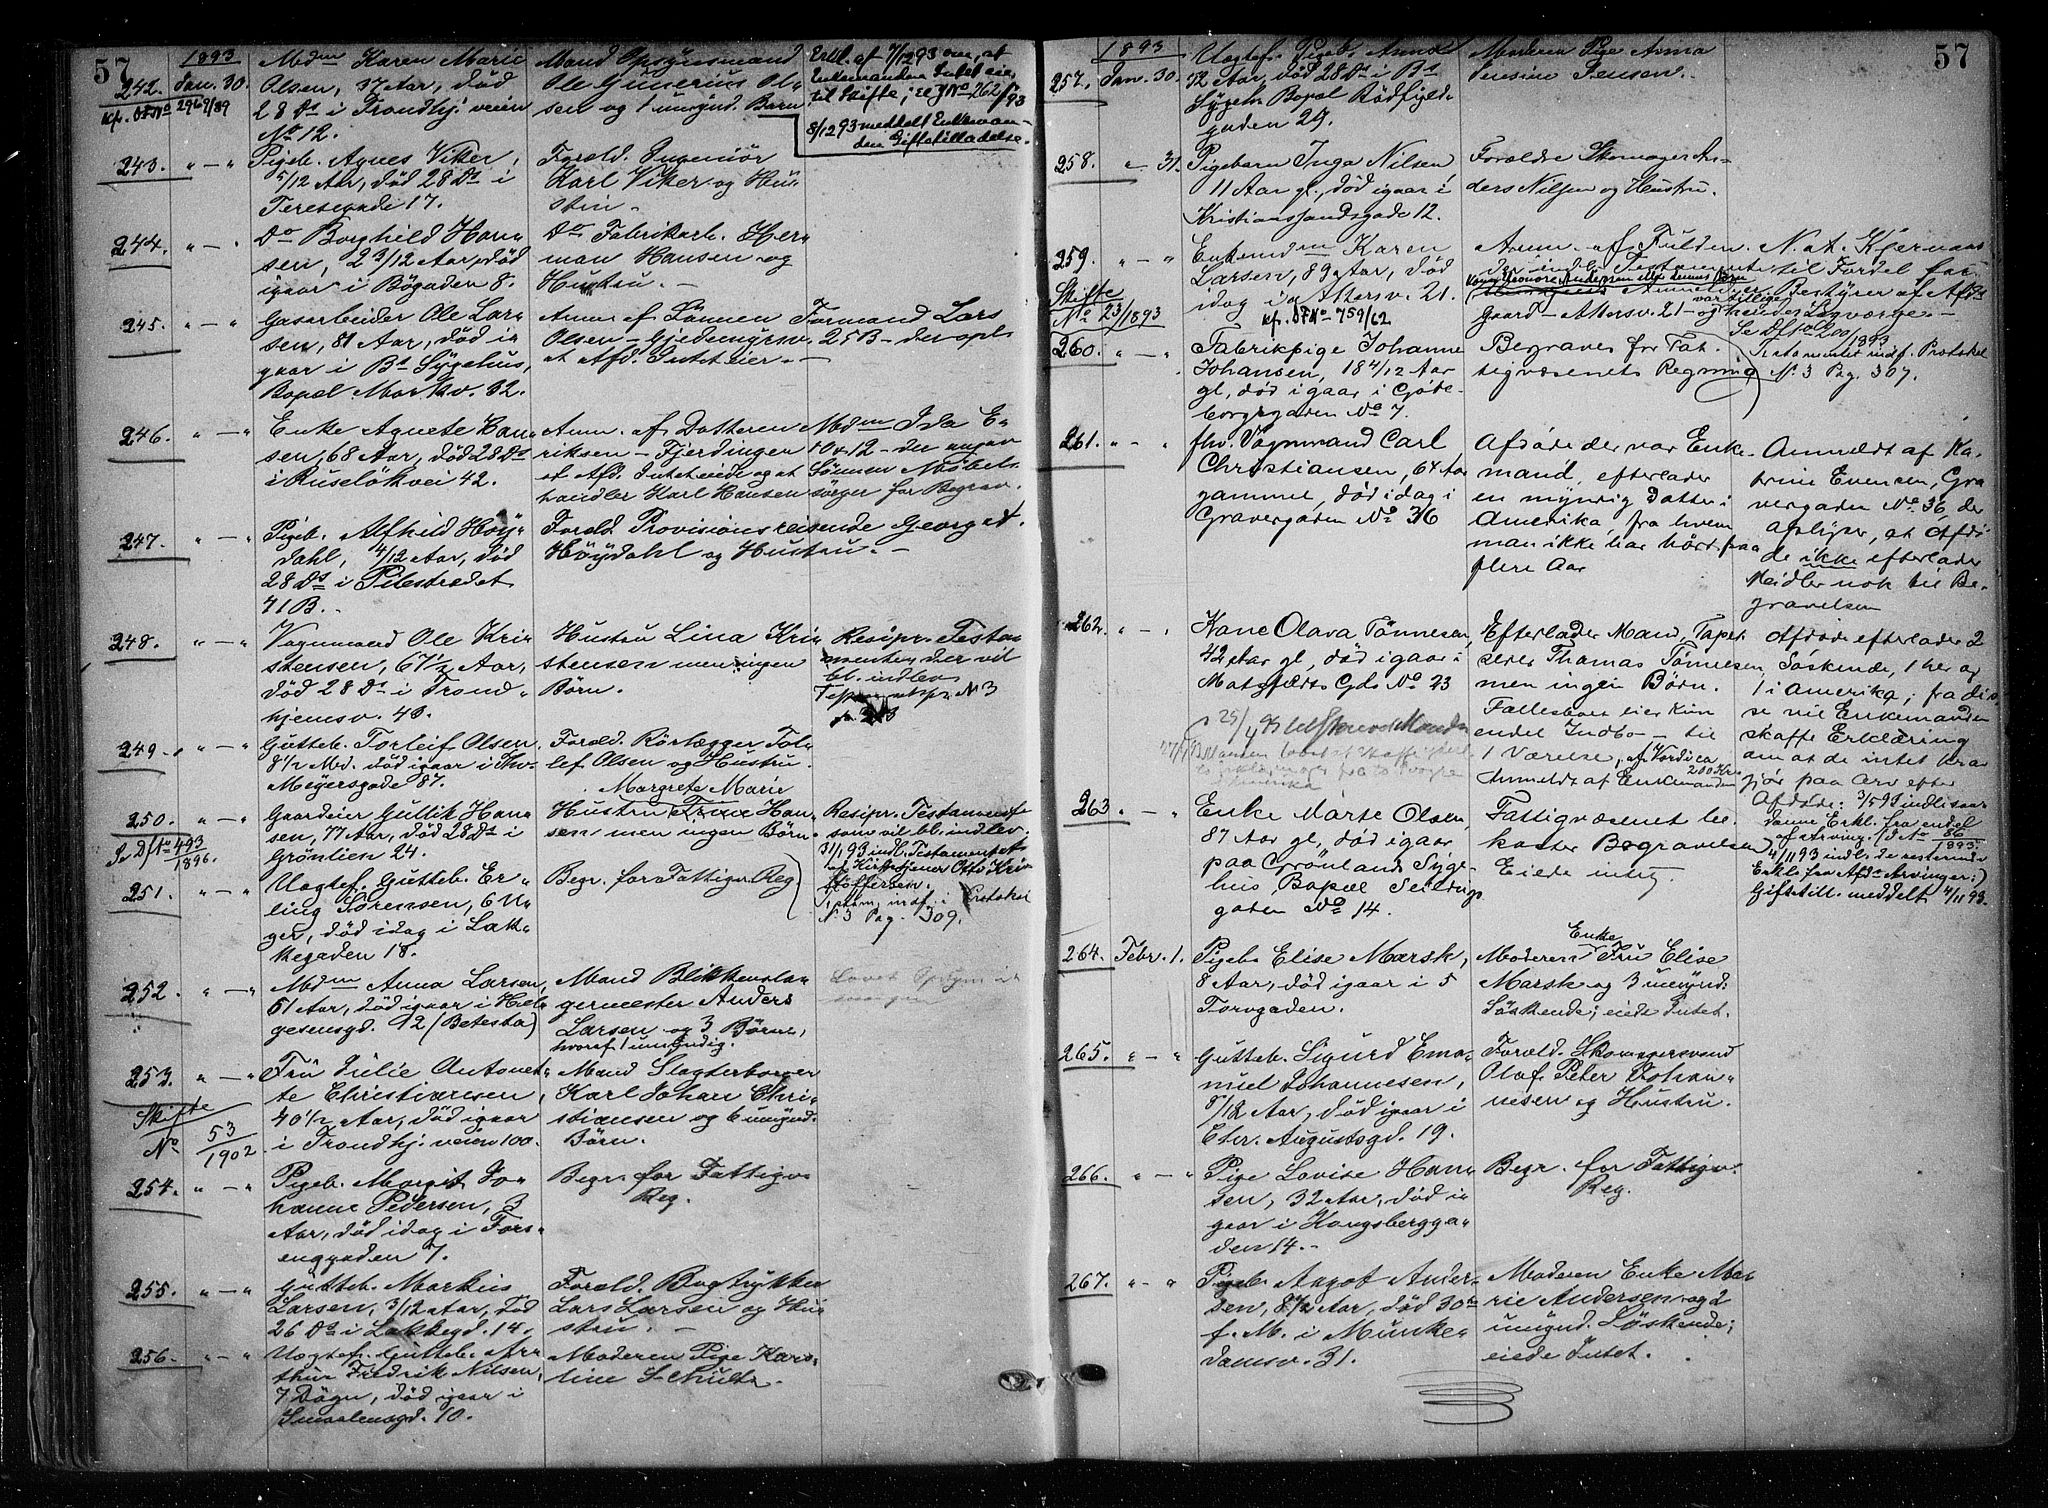 57
1893
242. Jan. 30.
kf. DF No 2967/89
Mdm Karen Marie
Olsen, 37 Aar, død
28 Ds i Trondhj. veien
No 12.
Mand Opsynsmand
Ole Gunerius Ol-
sen og 1 umynd. Barn
Erkl. af 7/12 93 om, at
Enkemanden Intet eier
til Skifte; se J No 262/93
8/12 93 meddelt Enkeman-
den Giftetilladelse.
243. " — "
Pigeb. Agnes Viker,
5/12 Aar, død 28 Ds i
Teresegade 17.
Foræld. Ingeniör
Karl Viker og Hu-
stru.
244. " — "
Do Borghild Han-
sen, 2 3/12 Aar, død
igaar i Bögaden 8.
Do Fabrikarb. Her-
man Hansen og
Hustru.
245. " — "
Gasarbeider Ole Lar-
sen, 81 Aar, død i-
gaar i Bs Sygehus,
Bopæl Markv. 32.
Anm. af Sönnen Formand Lars
Olsen – Gjedemyrsv. 25B – der opl.
at Afd. Intet eier. –
246. " — "
Enke Agnete Han-
sen, 68 Aar, død 28 Ds
i Ruselökvei 42.
Anm. af Datteren Mdm Ida E-
riksen – Fjerdingen 10 & 12 – der angav
at Afd. Intet eied. og at Sönnen Möbel-
handler Karl Hansen sörger for Begrav.
247. " — "
Pigeb. Alfhild Höy-
dahl, 4/12 Aar, død
28 Ds i Pilestrædet
41 B.
Foræld. Provisionsreisende Georg
Höydahl og Hustru. –
248. " — "
Vognmand Ole Kri-
stensen, 67 1/2 Aar,
død 28 Ds i Trond-
hjemsv. 43.
Hustru Lina Kri-
stensen men ingen
Börn.
Resipr. Testa-
mente, der vil
bl. indlev.
N 3
249. " — "
Gutteb. Torleif Olsen
8 1/2 Md. död igaar i Thv.
Meyersgade 87.
Foræld. Rörlægger Tol-
lef Olsen og Hustru.
250. " — "
Se Df No 493/1896.
Gaardeier Gullik Han-
sen, 77 Aar, död 28 Ds i
Grönlien 24.
Margrete Marie
Hustru Han-
sen men ingen Börn.
Resipr. Testamente
som vil bl. indlev.
31/1 93 indl. Testamentet
ved Kirketjener Otto Kri-
stoffersen.
Testam. indf. i Protokol
N 3 Pag. 309.
251. " — "
Uægtef. Gutteb. Er-
ling Sörensen, 6 U-
ger, död idag i Lak-
kegaden 18.
Begr. for Fattigv. Reg
252. " — "
Mdm Anna Larsen,
61 Aar, död igaar i Hel-
gesensgd. 42 (Betesta)
Mand Blikkensla-
germester Anders
Larsen og 3 Börn,
hvoraf 1 umyndig.
253. " — "
Skifte
No 53/1902
Frü Julie Antonet-
te Christiansen,
40 1/2 Aar, död igaar
i Trondhj. veien 100.
Mand Slagterborger
Karl Johan Chri-
stiansen og 6 umynd.
Börn.
254. " — "
Pigeb. Margit Jo-
hanne Pedersen, 3
Aar, död idag i Fors-
enggaden 7.
Begr. for Fattigv.
Reg.
255. " — "
Gutteb. Markus
Larsen, 3/12 Aar, död
26 Ds i Lakkegd. 14.
Foræld. Bogtrykker
Lars Larsen og Hu-
stru. –
256. " — "
Uægtef. Gutteb. Ar-
thur Fredrik Nilsen,
7 Dögn, död igaar i
Smaalensgd. 10.
Moderen Pige Karo-
line Schulte.
57
1893
257. Jan. 30.
Uægtef. Pigeb. Anna
død 28 Ds i Bs
Sygeh. Bopæl Rödfyld-
gaden 29.
Moderen Pige Anna
Jensine Jensen.
258. " – 31.
Pigebarn Inga Nilsen
11 Aar gl., död igaar i
Kristianssandsgade 12.
Forældre Skomager An-
ders Nilsen og Hustru.
259. " — "
Skifte
No 23/1893
Enkemdm Karen
Larsen, 89 Aar, död
idag i Akersv. 21.
kf. DF No 759/62
Anm. af Fuldm. N. at. Kjernaas
der indl. Testamente til Fordel for
Bestyrer af Afds
Gaard – Akersv. 21 – og hendes Lagværge. –
Se Df No 200/1893
Testamentet indf. Protokol
N. 3 Pag. 307.
260. " — "
Fabrikpige Johanne
Johansen, 18 Aar
gl, död igaar i Göte-
borggaden No 7.
Begraves for Fat-
tigvæsenets Regning
261. " – "
fhv. Vognmand Carl
Christiansen, 64 Aar
gammel, död idag i
Gravergaden No 36
Afdöde der var Enke-
mand, efterlader
en myndig Datter i
Amerika, fra hvem
man ikke har hört paa
flere Aar
Anmeldt af Ka-
trine Evensen, Gra-
vergaden No 36, der
oplyser, at Afdö-
de ikke efterlader
Midler nok til Be-
gravelsen
262. " – "
Kone Olava Tönnesen,
42 Aar gl, död igaar i
Matsfeldts Gds No 23
Efterlader Mand, Tapet-
serer Thomas Tönnesen,
men ingen Börn.
Fællesboet eier kun
endel Indbo – til
1 Værelse, af Værdi ca
200 Kr.
Anmeldt af Enkemanden
Afdöde efterlader 2
Söskende, 1 her og
1 i Amerika; fra dis-
se vil Enkemanden
skaffe Erklæring
om at de intet krav
gjör paa Arv efter
Afdöde: 3/5 93 indl. saa-
danne Erkl. fra endel
af Arving. (J No 86/1893.
4/11 93 indl. de resterende
Erkl. fra Afds Arvinger;)
Giftetill. meddelt 4/11 93.
263. " – "
Enke Marte Olsen,
87 Aar gl, död igaar
paa Grönland Syge-
hus, Bopæl Seildugs-
gaden No 14.
Fattigvæsenet be-
koster Begravelsen
Eiede intet.
264. Febr. 1.
Pigeb. Elise Marsk,
8 Aar, död igaar i 5
Torvgaden.
Enke
Moderen Frü Elise
Marsk og 3 umynd.
Söskende; eiede Intet.
265. " — "
Gutteb. Sigurd Ema-
nuel Johannesen,
8/12 Aar, död igaar i
Chr. Augustsgd. 19.
Foræld. Skomagersvend
Olaf Peter Johan-
nesen og Hustru.
266. " — "
Pige Lovise Han-
sen, 32 Aar, död i-
gaar i Kongsbergga-
den 14. –
Begr. for Fattigv.
Reg.
267. " — "
Pigeb. Aagot Ander-
sen, 8 1/2 Aar, död 30te
f. M. i Munke-
damsv. 31.
Moderen Enke Ma-
rie Andersen og 2
umynd. Söskende;
eiede Intet.